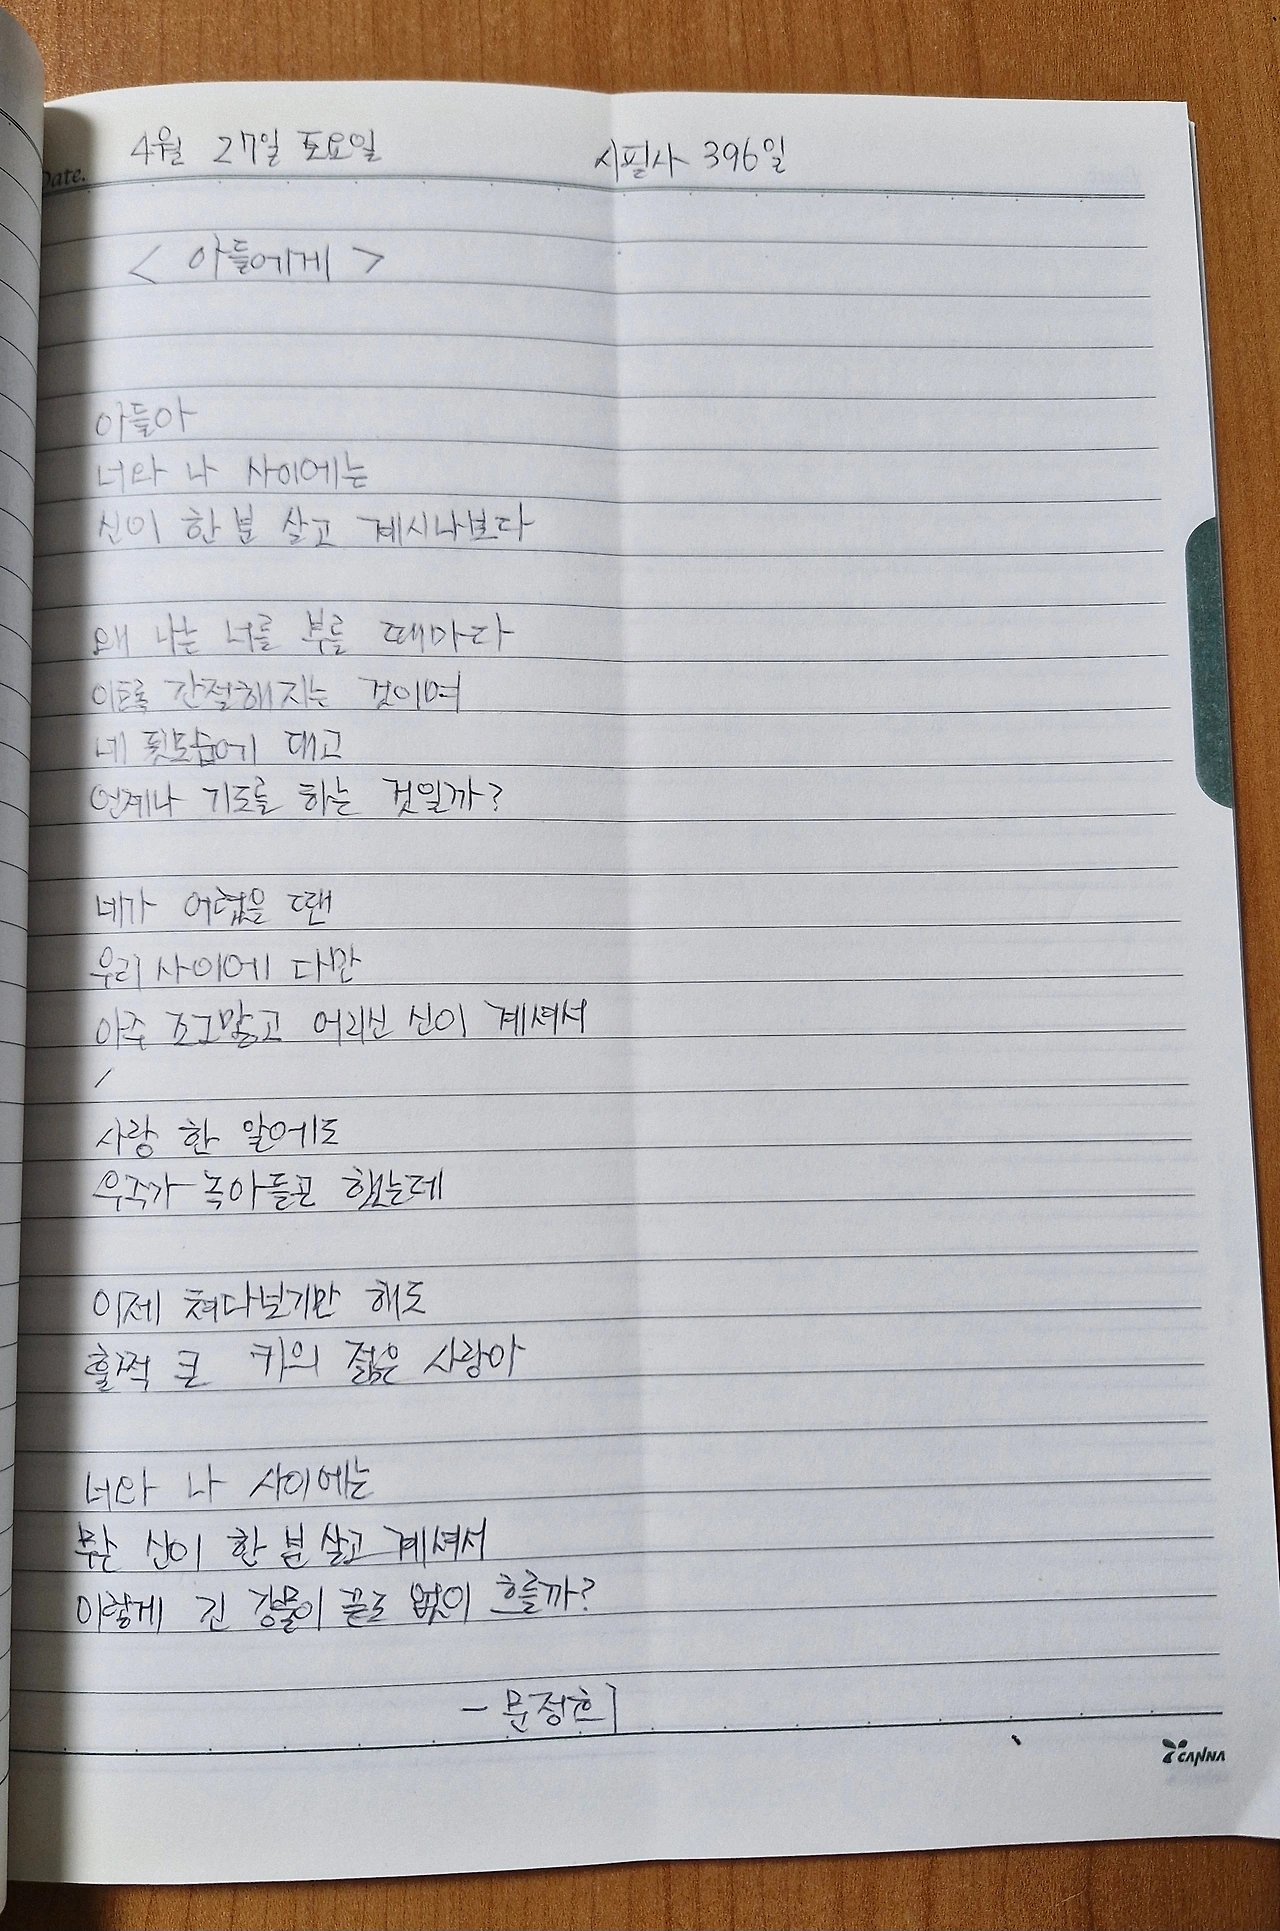 4월 27일 토요일 시필사 396일
Date.
< 아들에게 >
아들아
너와 나 사이에는
신이 한 분 살고 계시나보다
왜 나는 너를 부를 때마다
이토록 간절해지는 것이며
네 뒷모습에 대고
언제나 기도를 하는 것일까?
네가 어렸을 땐
우리 사이에 다만
아주 조그맣고 어리신 신이 계셔서
/
사랑 한 알에도
우주가 녹아들곤 했는데
이제 쳐다보기만 해도
훌쩍 큰 키의 젊은 사랑아
너와 나 사이에는
무슨 신이 한 분 살고 계셔서
이렇게 긴 강물이 끝도 없이 흐를까?
- 문정희
CANNA